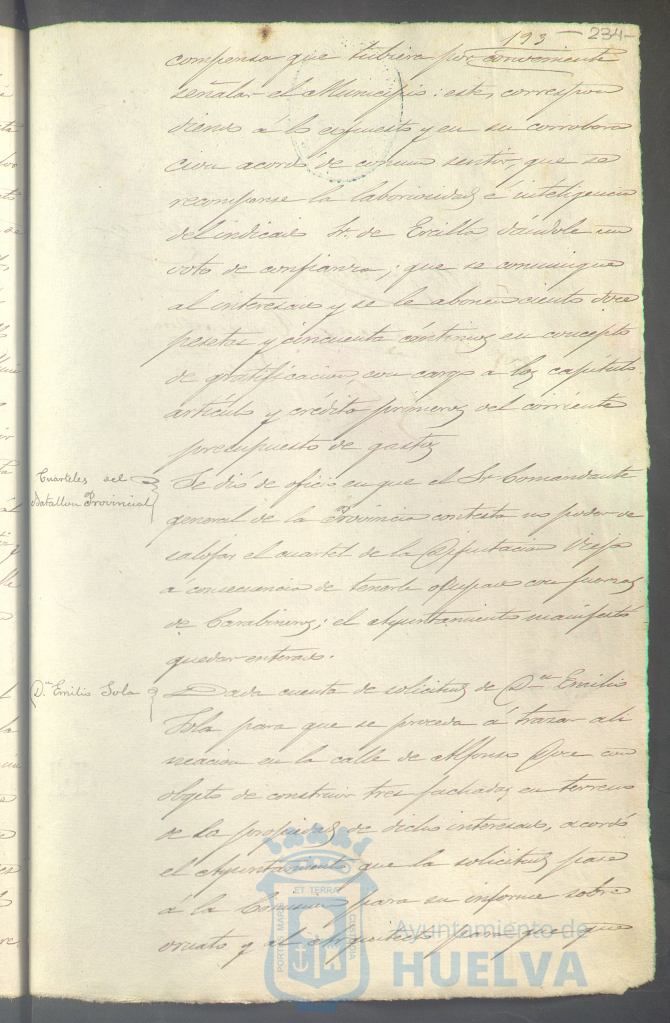 193 - 234 -
compensa que tubiera por conveniente
señalar el Municipio: este, correspon
diendo á lo expuesto y en su corrobora
cion acordó de comun sentir, que se
recompense la laboriosidad e inteligencia
del indicado Sr. de Ercilla dandole un
voto de confianza; que se comunique
al interesado y se le abonen ciento doce
pesetas y cincuenta céntimos en concepto
de gratificacion, con cargo a los capitulo
artículo y crédito primeros del corriente
presupuesto de gastos
Cuarteles del
Batallon Provincial
Se dió de oficio en que el Sr Comandante
general de la Provincia contesta no poder de
salojar el cuartel de la Diputacion Vieja
á consecuencia de tenerle ocupado con fuerzas
de Carabineros; el Ayuntamiento manifestó
quedar enterado.
Dn Emilio Sola
Dada cuenta de solicitud de Dn Emilio
Sola para que se proceda á trazar ali
neacion en la calle de Alfonso Doce con
objeto de construir tres fachadas en terreno
de la propiedad de dicho interesado, acordó
el Ayuntamiento que la solicitud pase
á la Comision para su informe sobre
ornato y al Arquitecto para que
PORTUS MARIS ET TERRAE CUSTODIA
Ayuntamiento de
HUELVA